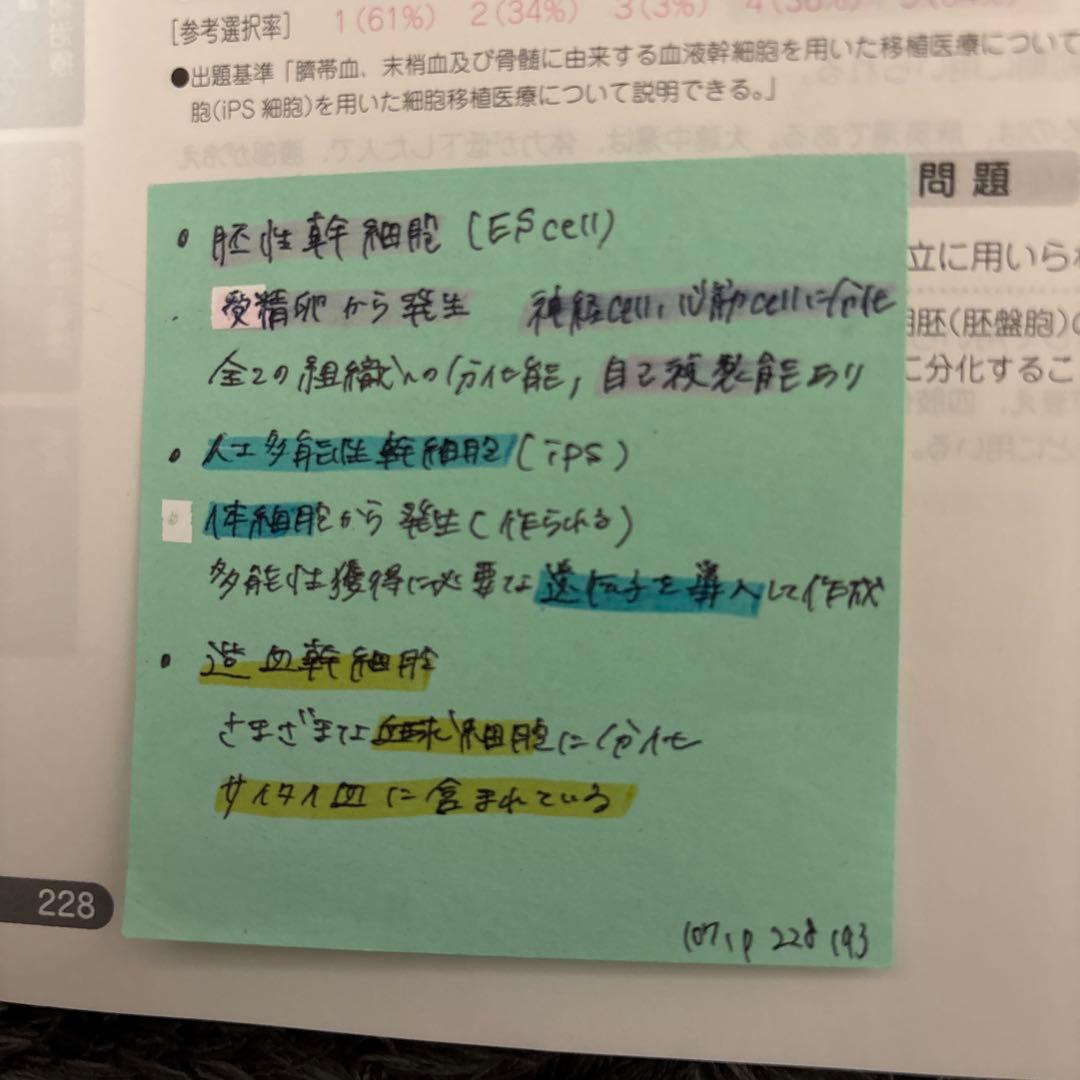 [参考選択率] 1(61%) 2(34%) 3(3%)
●出題基準「臍帯血、末梢血及び骨髄に由来する血液幹細胞を用いた移植医療について
胞(iPS 細胞)を用いた細胞移植医療について説明できる。」
問題
立に用いられ
胚(胚盤胞)の
に分化するこ
• 胚性幹細胞 (ES cell)
受精卵から発生 神経cell, 心筋cellに分化
全ての組織への分化能, 自己複製能あり
• 人工多能性幹細胞 (iPS)
体細胞から発生(作られる)
多能性獲得に必要な遺伝子を導入して作成
• 造血幹細胞
さまざまな血球細胞に分化
サイタイ血に含まれている
228